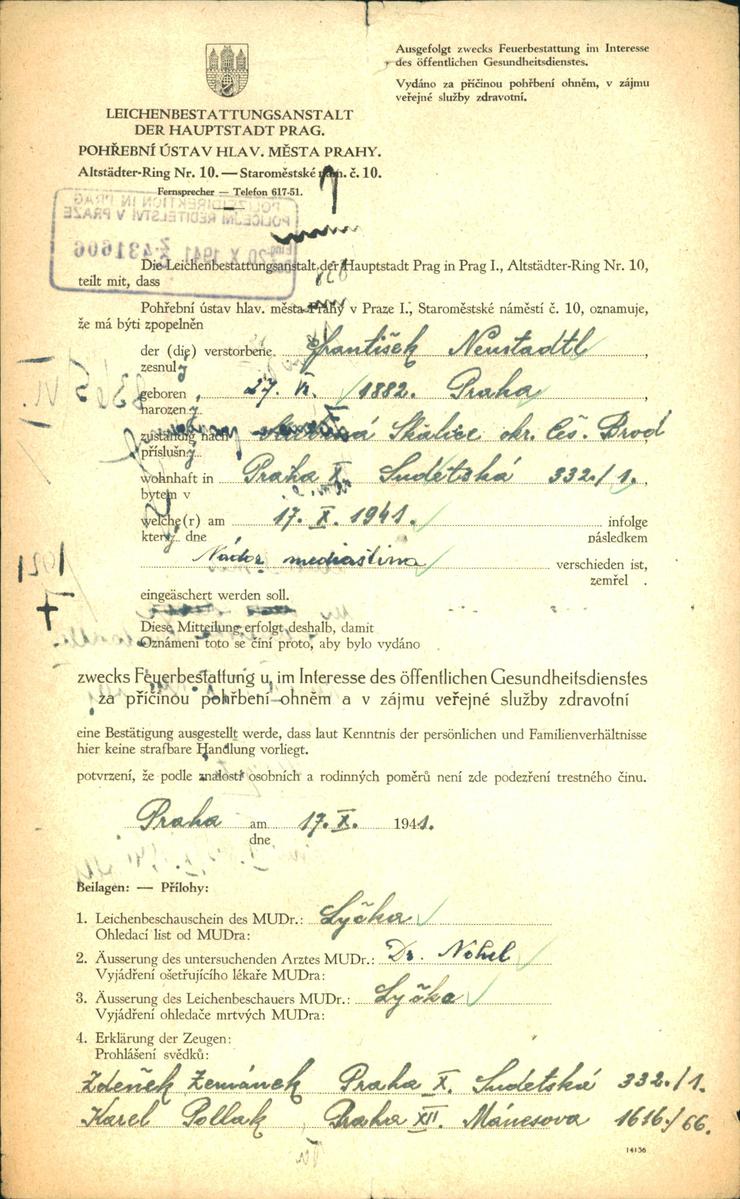 Ausgefolgt zwecks Feuerbestattung im Interesse
des öffentlichen Gesundheitsdienstes.
Vydáno za příčinou pohřbení ohněm, v zájmu
veřejné služby zdravotní.
LEICHENBESTATTUNGSANSTALT
DER HAUPTSTADT PRAG.
POHŘEBNÍ ÚSTAV HLAV. MĚSTA PRAHY.
Altstädter-Ring Nr. 10. — Staroměstské nám. č. 10.
Fernsprecher — Telefon 617-51.
POLIZEIDIREKTION IN PRAG
POLICEJNÍ ŘEDITELSTVÍ V PRAZE
20. X. 1941
431606
Die Leichenbestattungsanstalt der Hauptstadt Prag in Prag I., Altstädter-Ring Nr. 10,
teilt mit, dass
Pohřební ústav hlav. města Prahy v Praze I., Staroměstské náměstí č. 10, oznamuje,
že má býti zpopelněn
der (die) verstorbene František Neustadtl,
zesnulý
geboren 27. VI. 1882. Praha,
narozený
zuständig nach Skalice okr. Čes. Brod
příslušný
wohnhaft in Praha X Sudetská 332./1.,
bytem v
welche(r) am 17. X. 1941. infolge
který dne následkem
Nádor mediastina verschieden ist,
zemřel.
eingeäschert werden soll.
Diese Mitteilung erfolgt deshalb, damit
Oznámení toto se činí proto, aby bylo vydáno
zwecks Feuerbestattung u. im Interesse des öffentlichen Gesundheitsdienstes
za příčinou pohřbení ohněm a v zájmu veřejné služby zdravotní
eine Bestätigung ausgestellt werde, dass laut Kenntnis der persönlichen und Familienverhältnisse
hier keine strafbare Handlung vorliegt.
potvrzení, že podle znalostí osobních a rodinných poměrů není zde podezření trestného činu.
Praha am 17. X. 1941.
dne
Beilagen: — Přílohy:
1. Leichenbeschauschein des MUDr.: Lyčka
Ohledací list od MUDra:
2. Äusserung des untersuchenden Arztes MUDr.: Dr. Nohel
Vyjádření ošetřujícího lékaře MUDra:
3. Äusserung des Leichenbeschauers MUDr.: Lyčka
Vyjádření ohledače mrtvých MUDra:
4. Erklärung der Zeugen:
Prohlášení svědků:
Zdeněk Zemánek Praha X. Sudetská 332./1.
Karel Pollak, Praha XII. Mánesova 1616./66.
14136